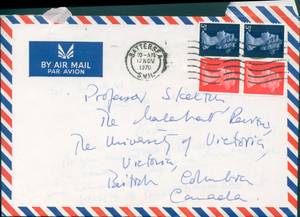 BY AIR MAIL
PAR AVION
BATTERSEA
10-AM
12 NOV
1970
S.W.11
Professor Skelton,
The Malahat Review,
The University of Victoria,
Victoria,
British Columbia
Canada.